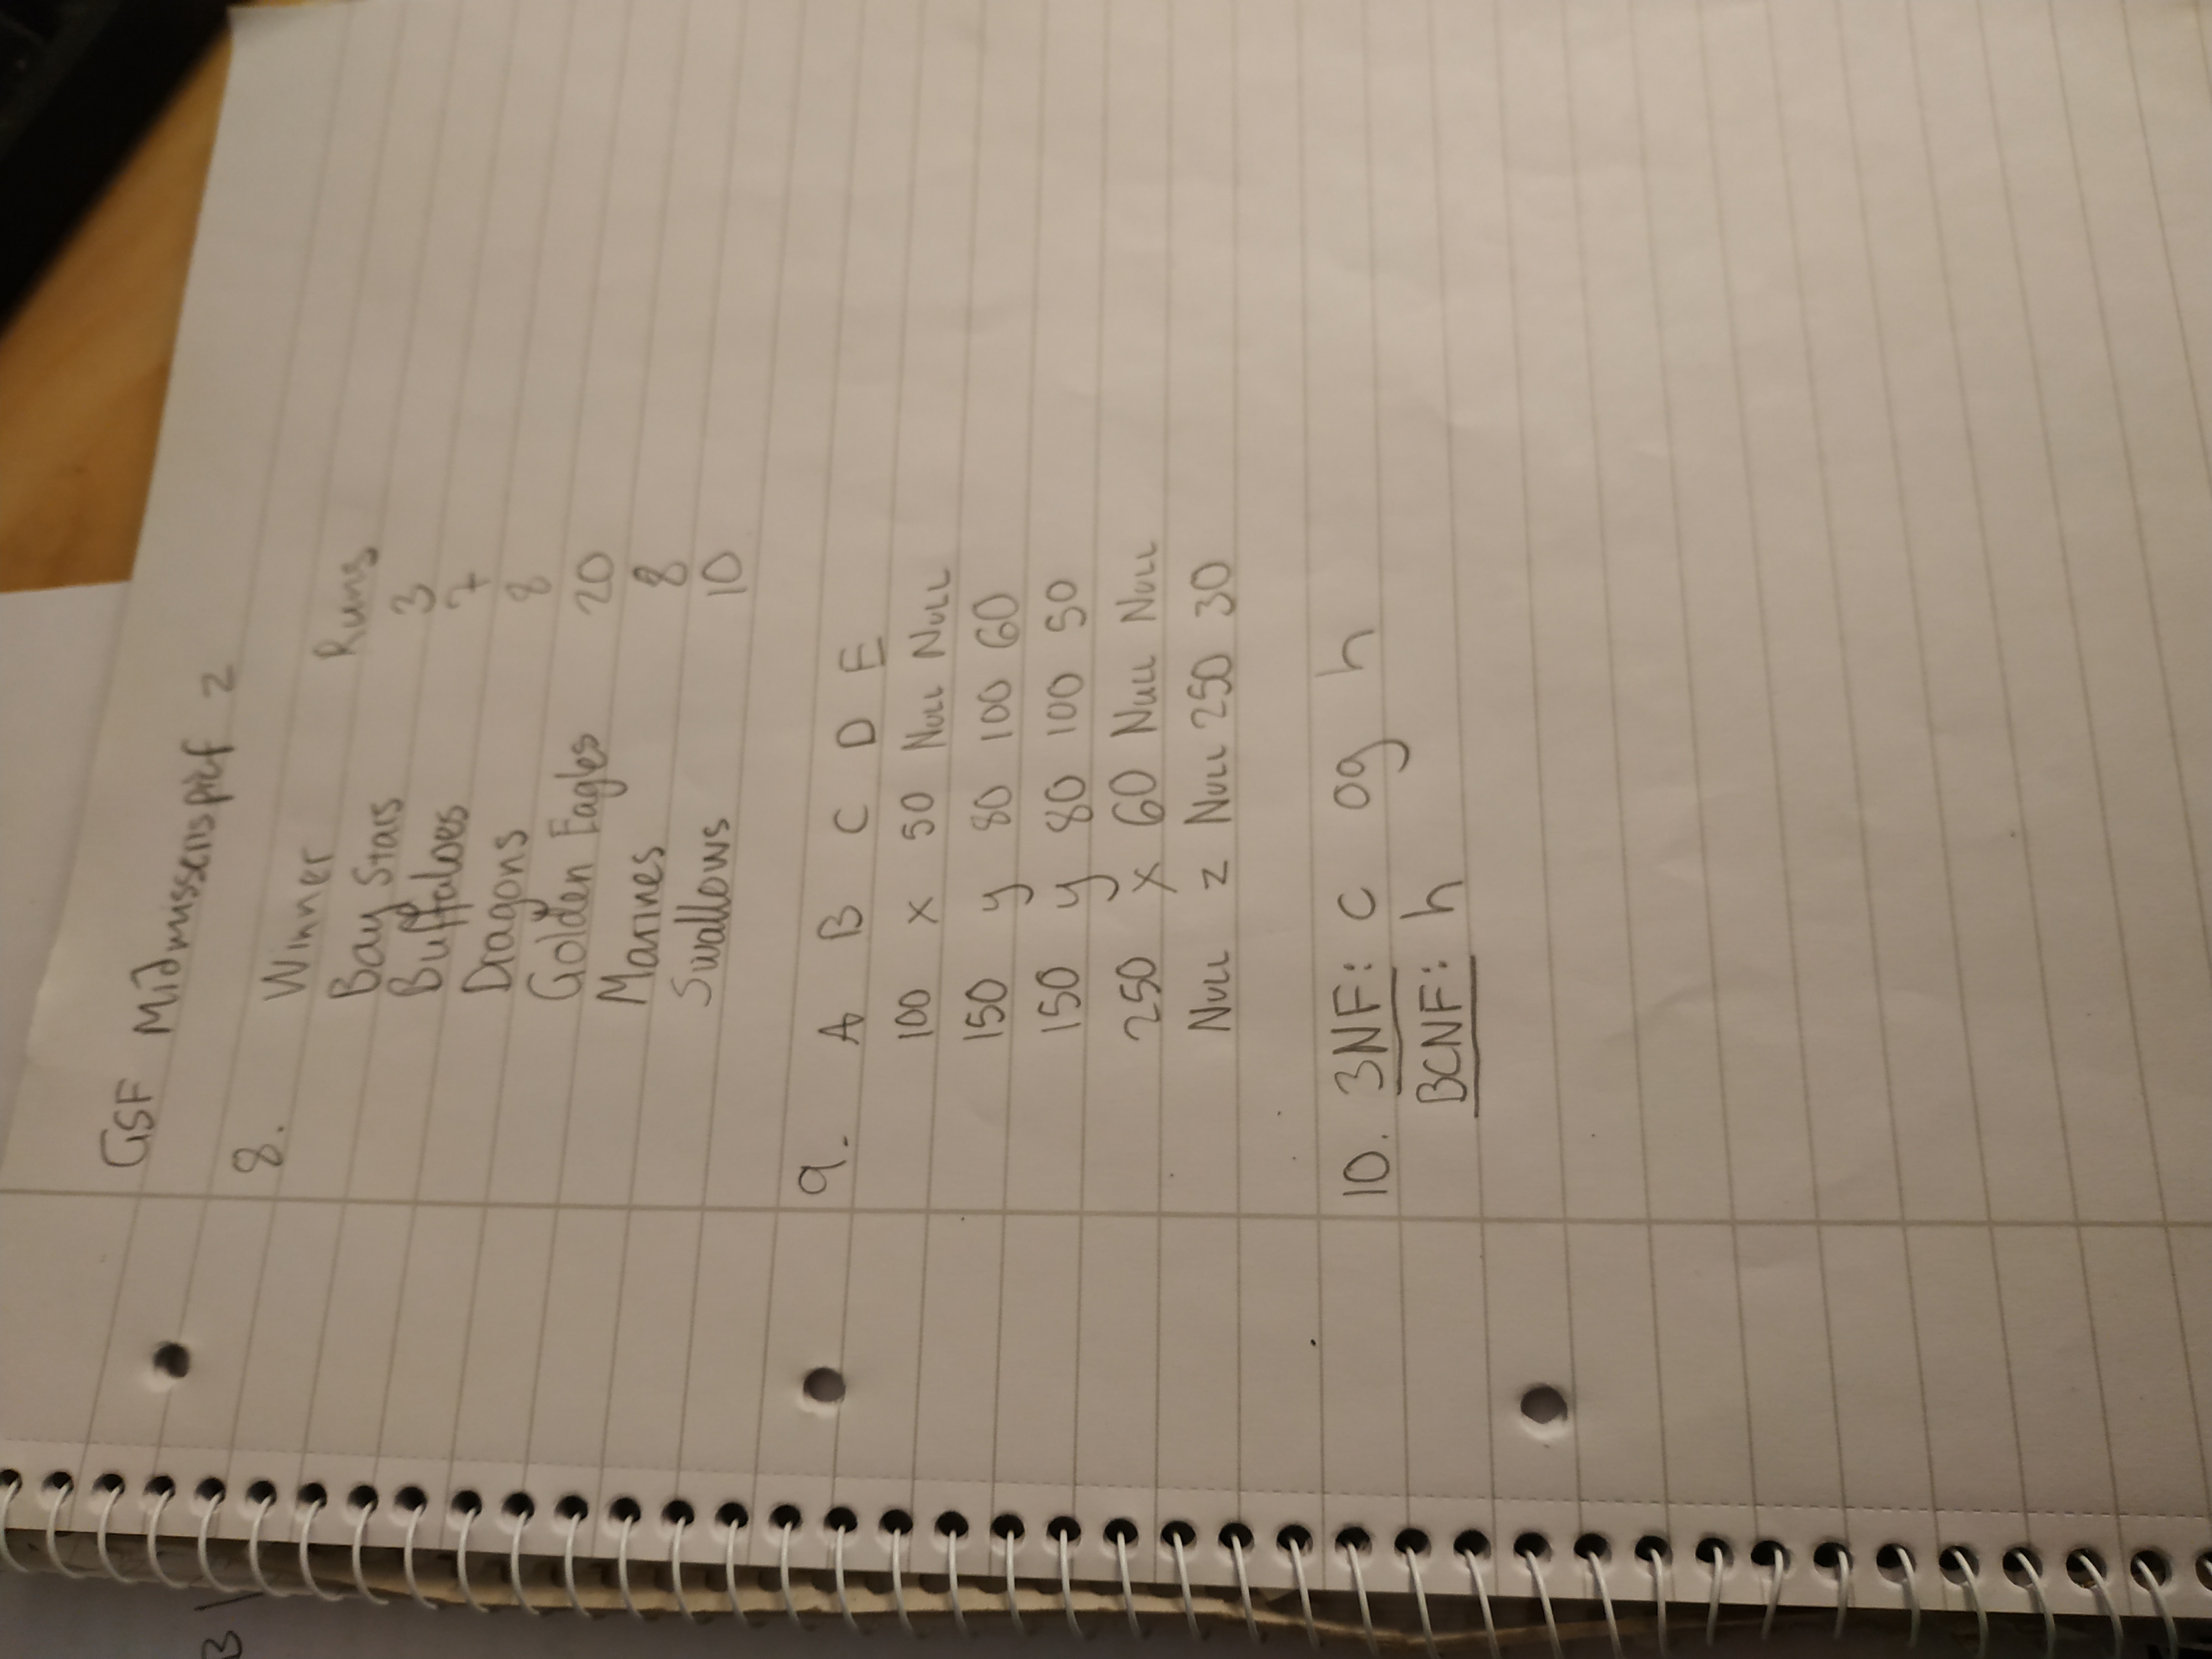 GSF Miðmissenspróf 2
8. Winner Runs
Bay Stars 3
Buffaloes 7
Dragons 8
Golden Eagles 20
Marines 8
Swallows 10
9. A B C D E
100 x 50 NULL NULL
150 y 80 100 60
150 y 80 100 50
250 x 60 NULL NULL
NULL z NULL 250 30
10. 3NF: c og h
BCNF: h
B